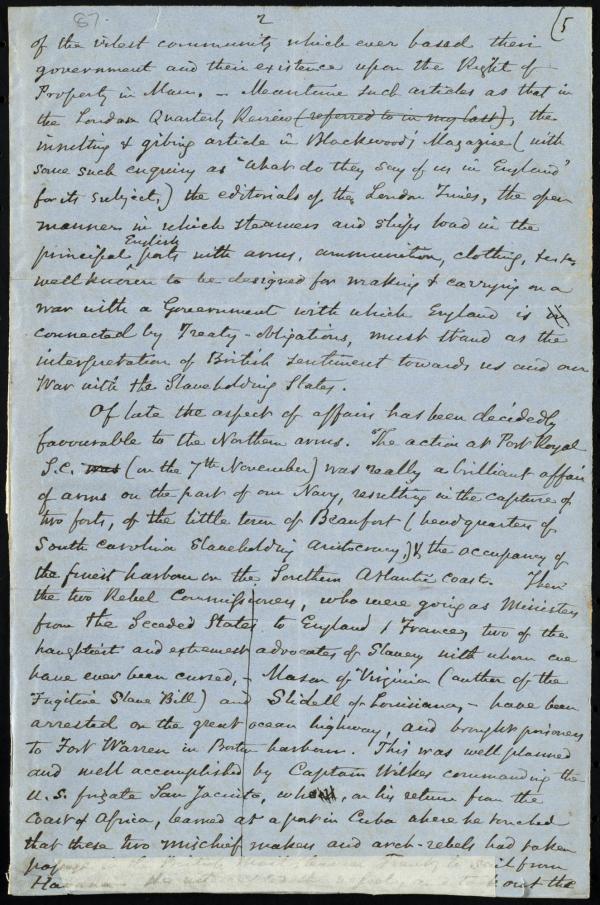 87.
2
(5
of the vilest community which ever based their
government and their existence upon the Right of
Property in Man. – Meantime such articles as that in
the London Quarterly Review (referred to in my last), the
insulting & gibing article in Blackwood's Magazine (with
some such enquiry as "What do they say of us in England"
for its subject,) the editorials of the London Times, the open
manner in which steamers and ships load in the
principal English ports with arms, ammunition, clothing, &c
well known to be designed for making & carrying on a
war with a Government with which England is
connected by Treaty-obligations, must stand as the
interpretation of British sentiment towards us and our
War with the Slaveholding States.
Of late the aspect of affairs has been decidedly
favourable to the Northern arms. The action at Port Royal
S.C. was (on the 7th November) was really a brilliant affair
of arms on the part of our Navy, resulting in the capture of
two forts, of the little town of Beaufort (headquarters of
South Carolina Slaveholding aristocracy,) & the occupancy of
the finest harbour on the Southern Atlantic coast. Then
the two Rebel Commissioners, who were going as Ministers
from the Seceded States to England & France, two of the
haughtiest and extremest advocates of Slavery with whom we
have ever been cursed, – Mason of Virginia (author of the
Fugitive Slave Bill) and Slidell of Louisiana, – have been
arrested on the great ocean highway, and brought prisoners
to Fort Warren in Boston harbour. This was well planned
and well accomplished by Captain Wilkes commanding the
U.S. frigate San Jacinto, who, on his return from the
Coast of Africa, learned at a port in Cuba where he touched
that these two mischief makers and arch-rebels had taken
passage in the British steamer Trent, to sail from
Havana. out the